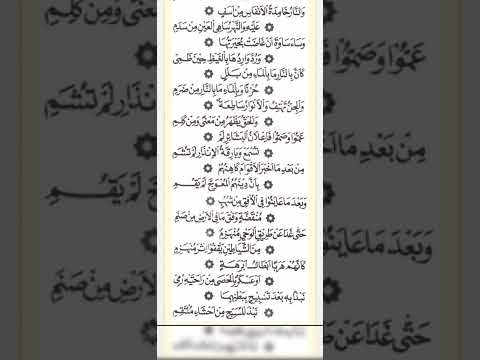 وَالنَّارُ خَامِدَةُ الْأَنْفَاسِ مِنْ أَسَفٍ
عَلَيْهِ وَالنَّهْرُ سَاهِي الْعَيْنِ مِنْ سَدَمِ
وَسَاءَ سَاوَةَ أَنْ غَاضَتْ بُحَيْرَتُهَا
وَرُدَّ وَارِدُهَا بِالْغَيْظِ حِينَ ظَمِي
كَأَنَّ بِالنَّارِ مَا بِالْمَاءِ مِنْ بَلَلٍ
حُزْنًا وَبِالْمَاءِ مَا بِالنَّارِ مِنْ ضَرَمِ
وَالْجِنُّ تَهْتِفُ وَالْأَنْوَارُ سَاطِعَةٌ
وَالْحَقُّ يَظْهَرُ مِنْ مَعْنًى وَمِنْ كَلِمِ
عَمُوا وَصَمُّوا فَإِعْلَانُ الْبَشَائِرِ لَمْ
تُسْمَعْ وَبَارِقَةُ الْإِنْذَارِ لَمْ تُشَمِ
مِنْ بَعْدِ مَا أَخْبَرَ الْأَقْوَامَ كَاهِنُهُمْ
بِأَنَّ دِينَهُمُ الْمُعْوَجَّ لَمْ يَقُمِ
وَبَعْدَ مَا عَايَنُوا فِي الْأُفْقِ مِنْ شُهُبٍ
مُنْقَضَّةٍ وَفْقَ مَا فِي الْأَرْضِ مِنْ صَنَمِ
حَتَّى غَدَا عَنْ طَرِيقِ الْوَحْيِ مُنْهَزِمٌ
مِنَ الشَّيَاطِينِ يَقْفُو إِثْرَ مُنْهَزِمِ
كَأَنَّهُمْ هَرَبًا أَبْطَالُ أَبْرَهَةٍ
أَوْ عَسْكَرٌ بِالْحَصَى مِنْ رَاحَتَيْهِ رُمِي
نَبْذًا بِهِ بَعْدَ تَسْبِيحٍ بِبَطْنِهِمَا
نَبْذَ الْمُسَبِّحِ مِنْ أَحْشَاءِ مُلْتَقِمِ
عَمُوا وَصَمُّوا
لَمْ تُشَمِ
مِنْ بَعْدِ مَا
وَبَعْدَ مَا
مِنْ صَنَمِ
حَتَّى غَدَا عَنْ